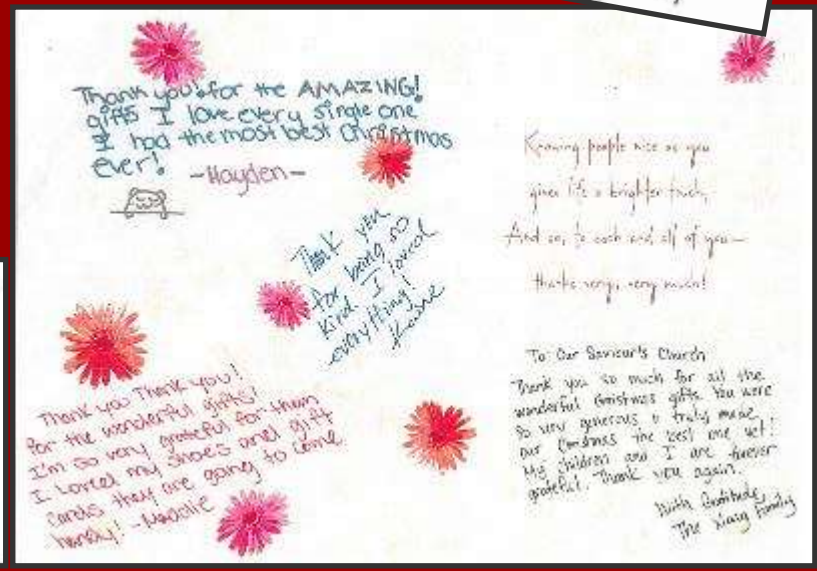 Thank you for the AMAZING!
gifts I love every single one
I had the most best Christmas
ever!
-Hayden-
Thank you
for being so
kind I loved
everything!
Thank you Thank you!
for the wonderful gifts!
I'm so very grateful for them
I Loved my shoes and gift
cards they are going to come
handy! -
Knowing people nice as you
gives life a brighter touch,
And so, to each and all of you—
thanks very, very much!
To Our Saviour's Church
Thank you so much for all the
wonderful Christmas gifts. You were
so very generous & truly made
our Christmas the best one yet!
My children and I are forever
grateful. Thank you again.
With Gratitude,
The Family